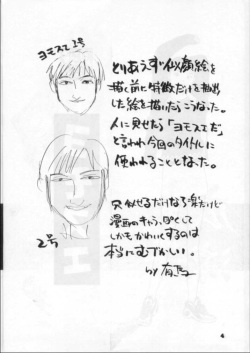 ヨモスエ2号
とりあえず似顔絵を
描く前に特徴だけを抽出
した絵を描いたらこうなった。
人に見せたら「ヨモスエだ」
と言われ今回のタイトルに
使われることとなった。
只似せるだけなら楽だけど
漫画のキャラっぽくして
しかもかわいくするのは
本当にむずかしい。
by
2号
4